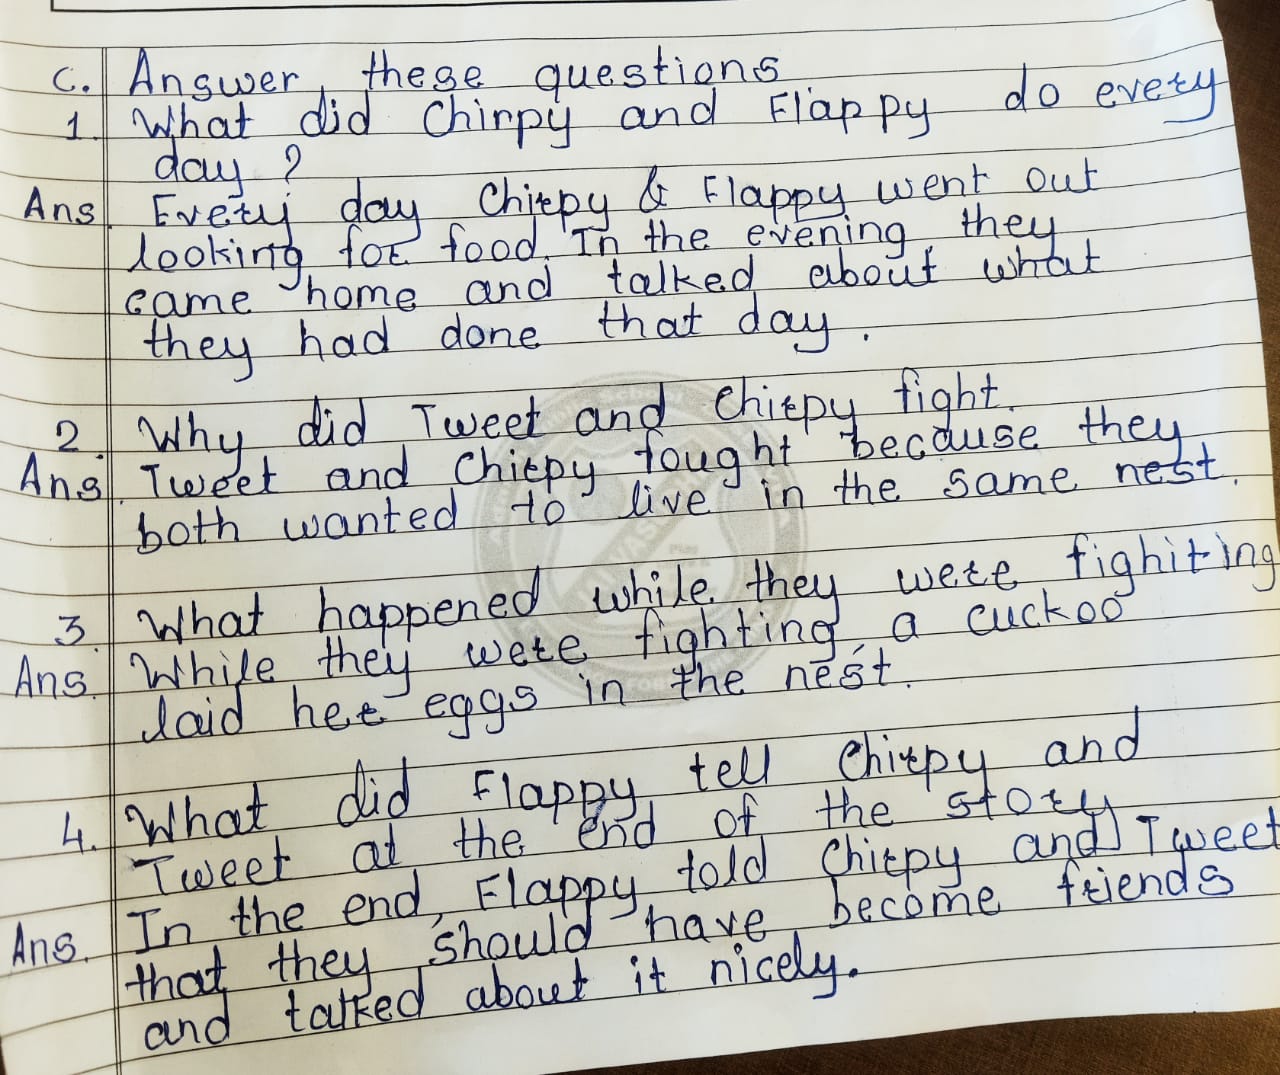 C. Answer these questions
1. What did Chirpy and Flappy do every
day ?
Ans. Every day Chirpy & Flappy went out
looking for food. In the evening, they
came home and talked about what
they had done that day.
2. Why did Tweet and Chirpy fight.
Ans. Tweet and Chirpy fought because they
both wanted to live in the same nest.
3. What happened while they were fighiting
Ans. While they were fighting, a cuckoo
laid her eggs in the nest.
4. What did Flappy tell Chirpy and
Tweet at the end of the story
Ans. In the end, Flappy told Chirpy and Tweet
that they should have become friends
and talked about it nicely.